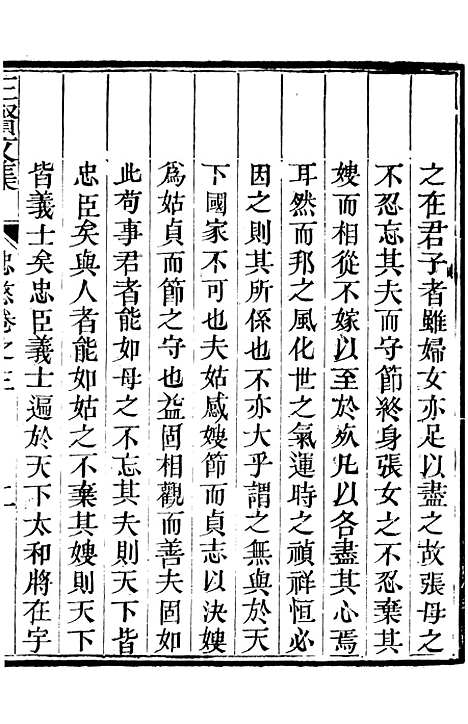 之在君子者雖婦女亦足以盡之故張母之
不忍忘其夫而守節終身張女之不忍棄其
嫂而相從不嫁以至於歿凡以各盡其心焉
耳然而邦之風化世之氣運時之禎祥恒必
因之則其所係也不亦大乎謂之無與於天
下國家不可也夫姑感嫂節而貞志以決嫂
爲姑貞而節之守也益固相觀而善夫固如
此苟事君者能如母之不忘其夫則天下皆
忠臣矣與人者能如姑之不棄其嫂則天下
皆義士矣忠臣義士遍於天下太和將在宇
三賢文集
卷之三